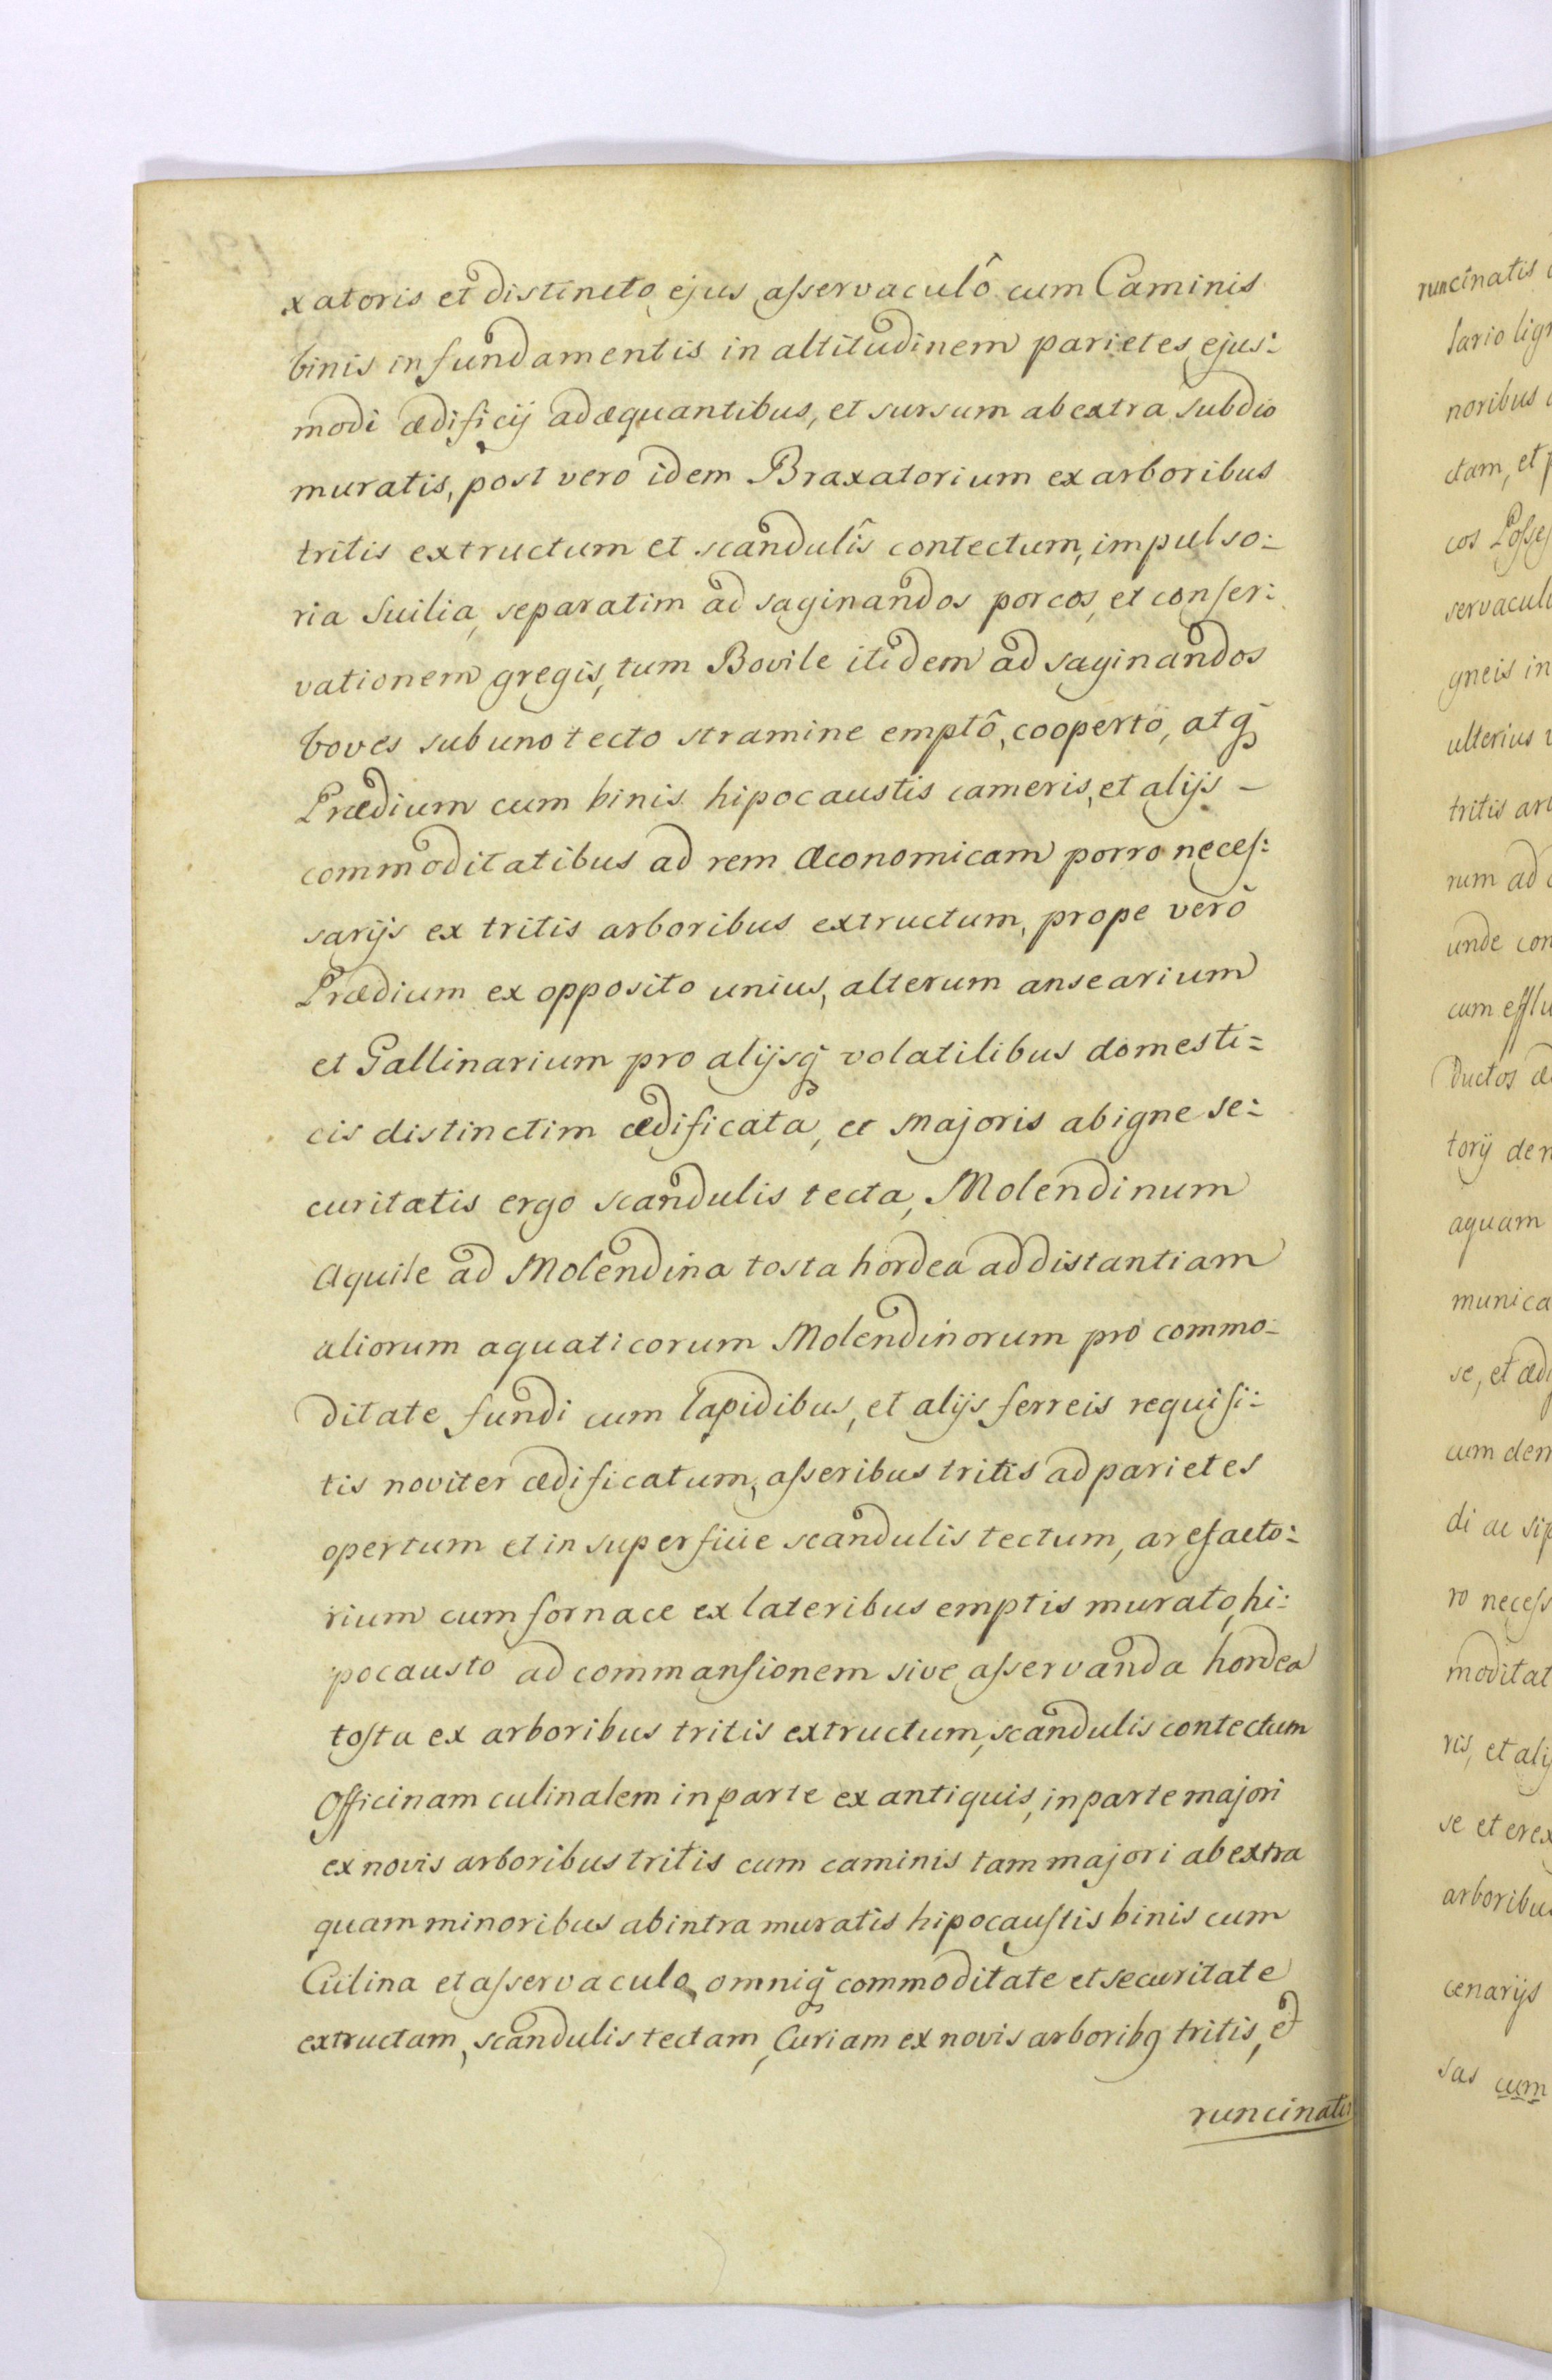 xatoris et distincto ejus asservaculô cum Caminis
binis in fundamentis in altitudinem parietes ejus:
modi ædificij adæquantibus, et sursum ab extra subdio
muratis, post vero idem Braxatorium ex arboribus
tritis extructum et scandulis contectum, impulso:
ria Suilia, separatim ad saginandos porcos, et conser:
vationem gregis, tum Bovile itidem ad saginandos
boves sub uno tecto stramine emptô, cooperto, atq̃
Prædium cum binis hipocaustis cameris, et alijs –
commoditatibus ad rem œconomicam porro neces:
sarijs ex tritis arboribus extructum, prope verò
Prædium ex opposito unius, alterum ansearium
et Gallinarium pro alijsq̃ volatilibus domesti:
cis distinctim ædificata, et majoris ab igne se:
curitatis ergo scandulis tecta, Molendinum
Aquile ad Molendina tosta hordea ad distantiam
aliorum aquaticorum Molendinorum pro commo:
ditate fundi cum lapidibus, et alijs ferreis requisi:
tis noviter ædificatum, asseribus tritis ad parietes
opertum et in superficie scandulis tectum, arefacto:
rium cum fornace ex lateribus emptis murato, hi:
pocausto ad commansionem sive asservanda hordea
tosta ex arboribus tritis extructum, scandulis contectum
Officinam culinalem in parte ex antiquis, in parte majori
ex novis arboribus tritis cum caminis tam majori ab extra
quam minoribus ab intra muratis hipocaustis binis cum
Culina et asservaculo, omniq̃ commoditate et securitate
extructam, scandulis tectam, Curiam ex novis arboribq tritis, et
runcinatis
runcinatis
lario lign
noribus
ctam, et p
cos Posses
servacul
gneis in
ulterius
tritis arb
rum ad
unde con
cum efflu
ductos æ
torij den
aquam
munica
se, et ædi
cum dem
di ac sip
ro necess
moditat
ris, et alij
se et erex
arboribus
cenarijs
sas cum